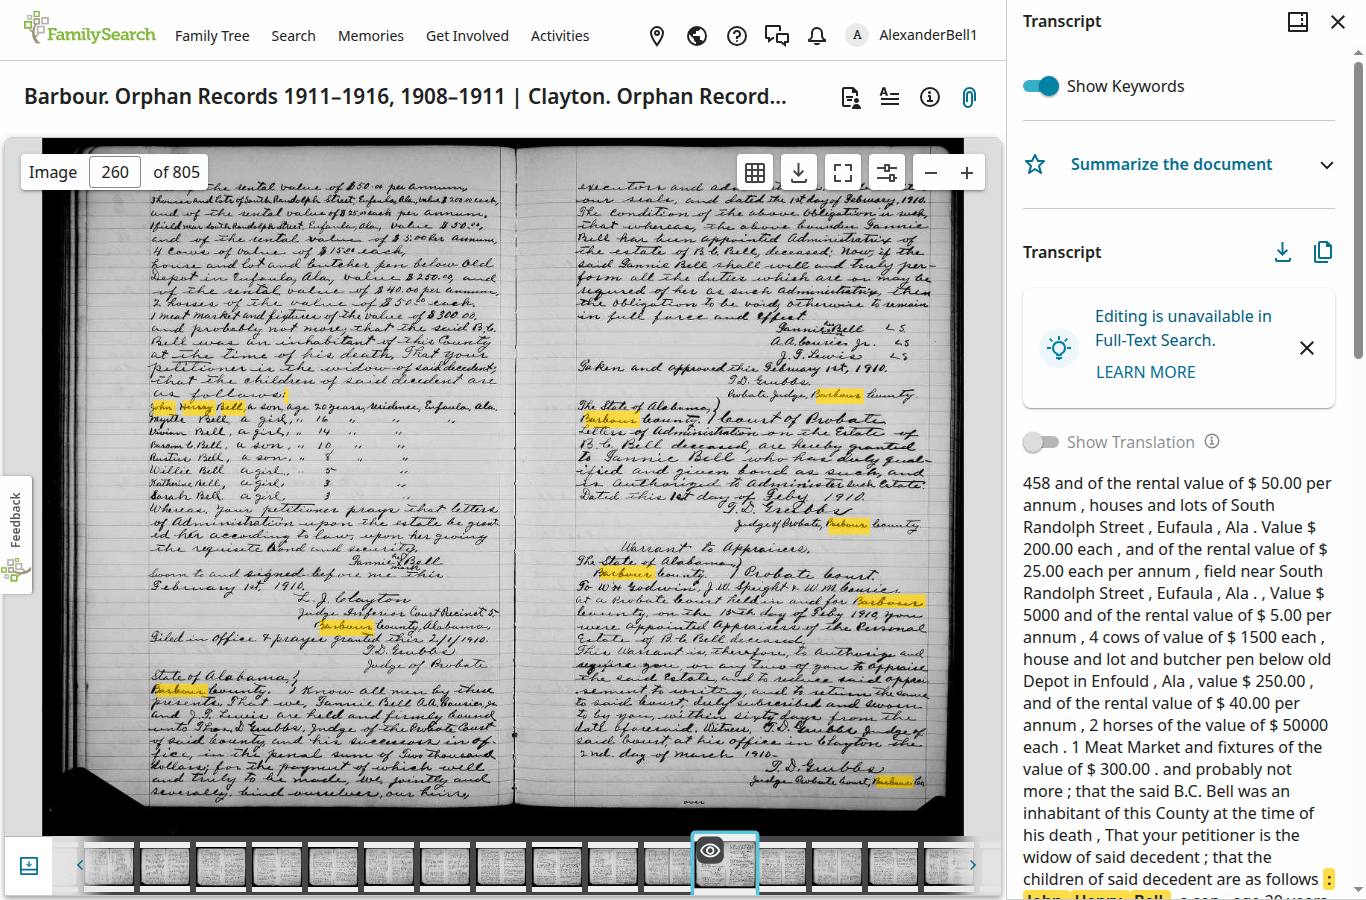 FamilySearch
Family Tree
Search
Memories
Get Involved
Activities
A
AlexanderBell1
Barbour. Orphan Records 1911–1916, 1908–1911 | Clayton. Orphan Record...
Image 260 of 805
the rental value of $50.00 per annum,
houses and lots of South Randolph Street, Eufaula, Ala, value $200.00 each,
and of the rental value of $25.00 each per annum.
1 field near South Randolph Street, Eufaula, Ala, value $50.00,
and of the rental value of $5.00 per annum,
4 cows of value of $15.00 each,
house and lot and butcher pen below Old
Depot in Eufaula, Ala, value $250.00, and
of the rental value of $40.00 per annum,
2 horses of the value of $50.00 each.
1 meat market and fixtures of the value of $300.00.
and probably not more; that the said B.C.
Bell was an inhabitant of this County
at the time of his death, That your
petitioner is the widow of said decedent;
that the children of said decedent are
as follows:
John Henry Bell, a son, age 20 years, residence, Eufaula, Ala.
Myrtle Bell, a girl, " 16 " " "
Vivian Bell, a girl, " 14 " " "
Bell, a son, " 10, " "
Bell, a son, " 8 " "
Willie Bell a girl, " 5 "
Katherine Bell, a girl, 3 "
Sarah Bell, a girl, 3 "
Whereas, your petitioner prays that letters
of Administration upon the estate be grant
ed her according to law, upon her giving
the requisite bond and security.
Fannie Bell
Sworn to and signed before me this
February 1st, 1910.
L. J. Clayton
Judge Inferior Court Precinct 5
Barbour County, Alabama,
Filed in Office & prayer granted this 2/1/1910.
T.D. Grubbs
Judge of Probate
State of Alabama, }
Barbour County. } Know all men by these
presents, That we, Fannie Bell A.A. Couric Jr
and J.F. Lewis are held and firmly bound
unto Thos. D. Grubbs, Judge of the Probate Court
of said County and his successors in of
fice, in the penal sum of Two thousand
dollars; for the payment of which well
and truly to be made, we, jointly and
severally, bind ourselves, our heirs,
executors and
our seals, and dated the 1st day of February, 1910.
The condition of the above obligation is such,
that whereas, the above bounden Fannie
Bell has been appointed Administratrix of
the estate of B.C. Bell, deceased; Now, if the
said Fannie Bell shall well and truly per-
form all the duties which are or may be
required of her as such Administratrix, then
the obligation to be void, otherwise to remain
in full force and effect.
Fannie Bell L S
A.A. Couric Jr. L S
J.F. Lewis L S
Taken and approved this February 1st, 1910.
T.D. Grubbs.
Probate Judge, Barbour County.
The State of Alabama, }
Barbour County. } Court of Probate
Letters of Administration on the Estate of
B.C. Bell deceased, are hereby granted
to Fannie Bell who has duly qual-
ified and given bond as such, and
is authorized to Administer such Estate.
Dated this 1st day of Feby 1910.
T.D. Grubbs
Judge of Probate, Barbour County
Warrant to Appraisers.
The State of Alabama, }
Barbour County. } Probate Court.
To W H Godwin, J.W. Speight & W.M. Couric.
At a Probate Court held in and for Barbour
County, on the day of Feby 1910, you
were appointed Appraisers of the Personal
Estate of B.C. Bell deceased,
This Warrant is, therefore, to authorize and
require you, or any two of you to appraise
the said Estate, and to reduce said apprai
sement to writing, and to return the same
to said Court, duly subscribed and sworn
to by you, within sixty days from the
date aforesaid. Witness, T.D. Grubbs Judge of
said Court, at his office in Clayton the
2nd day of March 1910
T.D. Grubbs
Judge Probate Court, Barbour Co
over
Feedback
Transcript
Show Keywords
Summarize the document
Transcript
Editing is unavailable in
Full-Text Search.
LEARN MORE
Show Translation
458 and of the rental value of $ 50.00 per
annum , houses and lots of South
Randolph Street , Eufaula , Ala . Value $
200.00 each , and of the rental value of $
25.00 each per annum , field near South
Randolph Street , Eufaula , Ala . , Value $
5000 and of the rental value of $ 5.00 per
annum , 4 cows of value of $ 1500 each ,
house and lot and butcher pen below old
Depot in Enfould , Ala , value $ 250.00 ,
and of the rental value of $ 40.00 per
annum , 2 horses of the value of $ 50000
each . 1 Meat Market and fixtures of the
value of $ 300.00 . and probably not
more ; that the said B.C. Bell was an
inhabitant of this County at the time of
his death , That your petitioner is the
widow of said decedent ; that the
children of said decedent are as follows :
John Henry Bell , a son , age 20 years